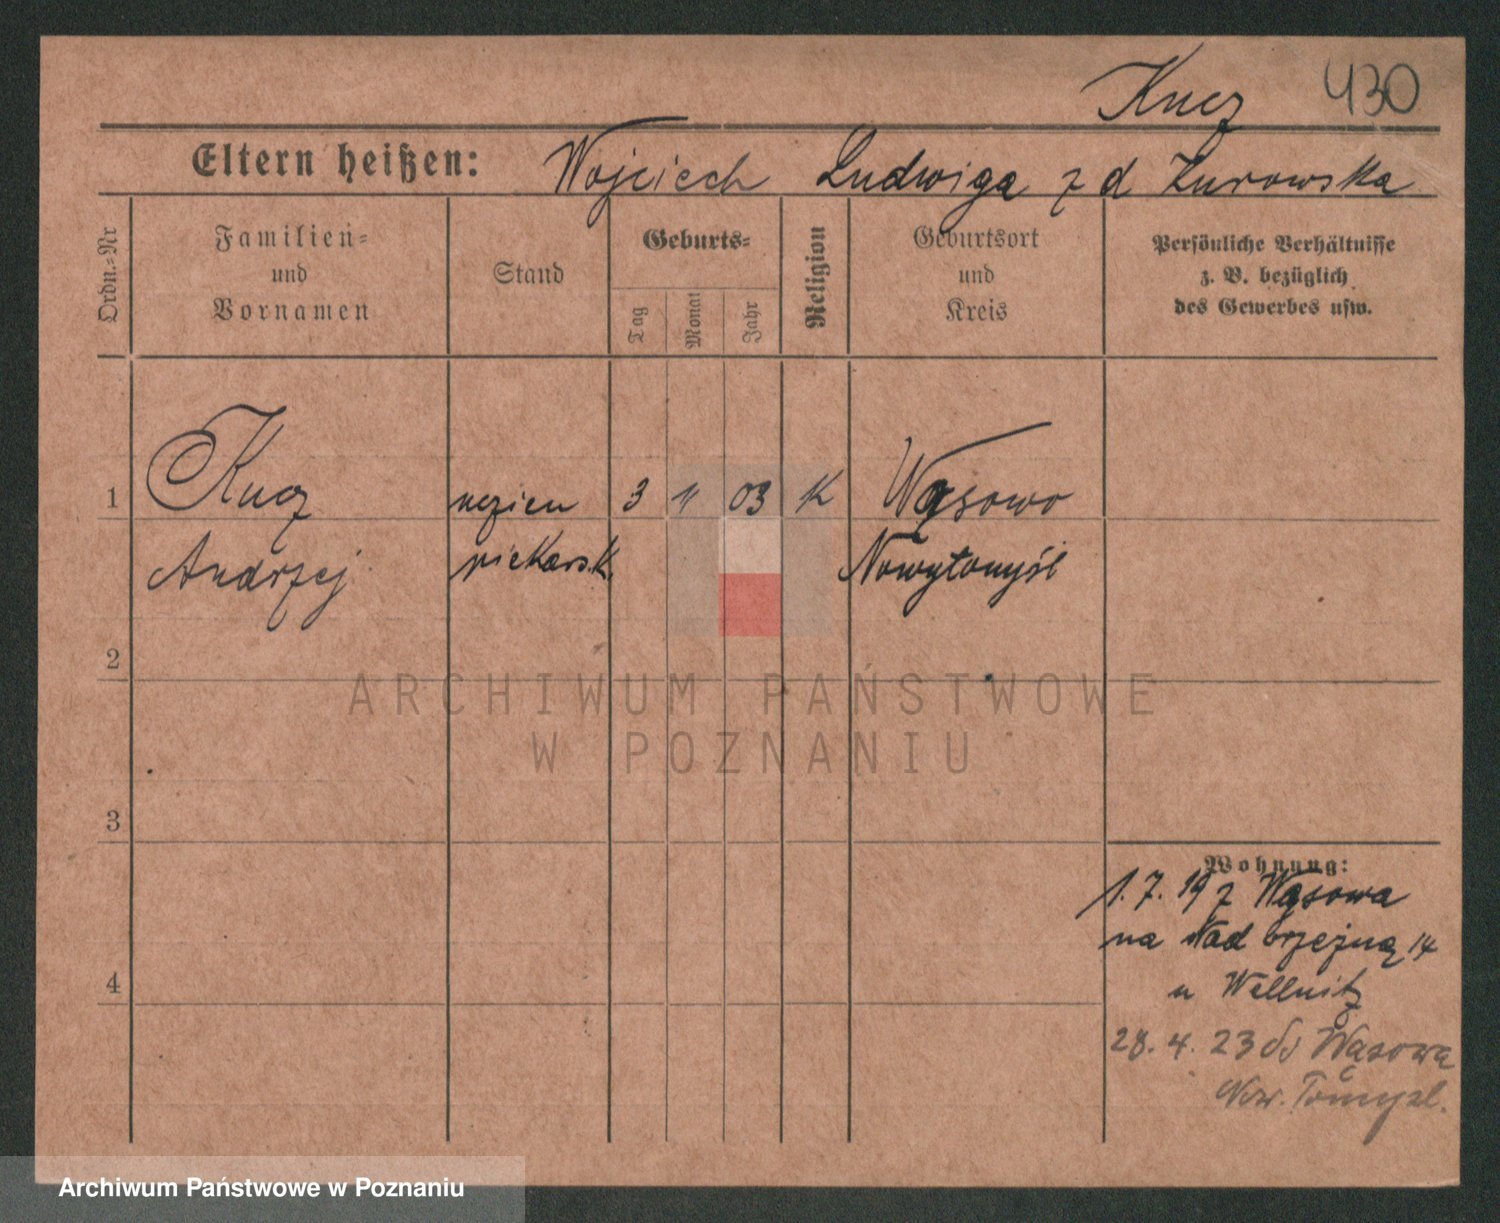 Kucz 430
Eltern heißen: Wojciech Ludwiga z d Żurowska
Ordn.-Nr
Familien-
und
Vornamen
Stand
Geburts-
Tag
Monat
Jahr
Religion
Geburtsort
und
Kreis
Persönliche Verhältnisse
z. B. bezüglich
des Gewerbes usw.
1 Kucz uczien 3 11 03 K Wąsowo
Andrzej piekarsk. Nowytomyśl
2
ARCHIWUM PAŃSTWOWE
W POZNANIU
3
Wohnung:
1.7.19 z Wąsowa
na Nad brzeżną 14
u Wellnitz
4
28.4.23 do Wąsowa
Now. Tomyśl.
Archiwum Państwowe w Poznaniu